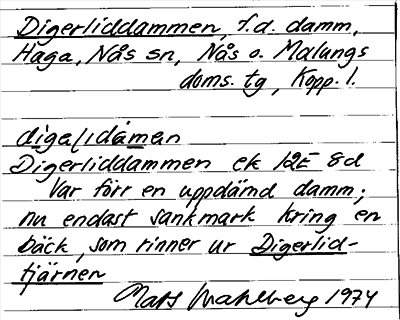 Digerliddammen, f.d. damm,
Haga, Nås sn, Nås o. Malungs
doms. tg, Kopp. l.
digalidáman
Digerliddammen ek 12E 8d
Var förr en uppdämd damm;
nu endast sankmark kring en
bäck, som rinner ur Digerlid-
tjärnen
Mats Wahlberg 1974